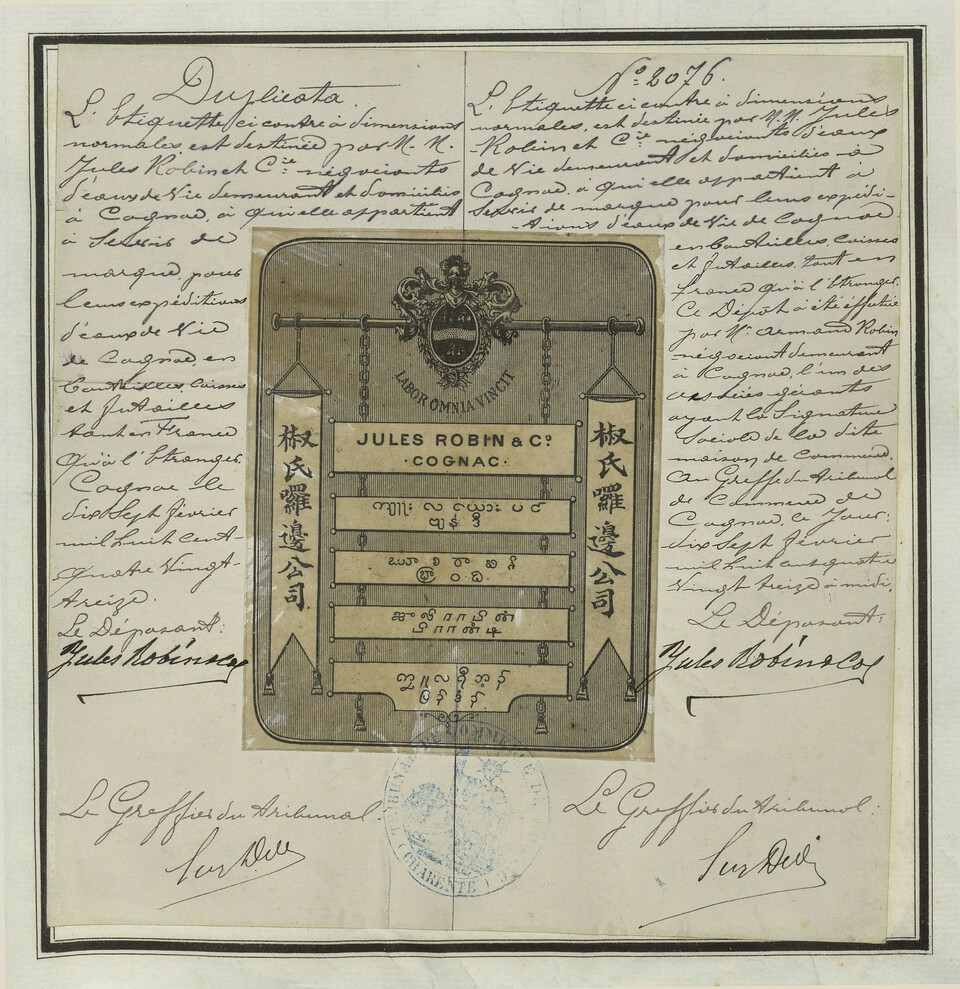 Duplicata.
L'Etiquette ci contre à dimensions
normales est destinée par M. M.
Jules Robin et Cie négociants
d'eaux de Vie demeurant et domiciliés
à Cognac, à qui elle appartient
à Servir de
marque, pour
leurs expéditions
d'eaux de Vie
de Cognac, en
Bouteilles, caisses
et futailles
tant en France
qu'à l'Etranger.
Cognac le
dix Sept février
mil huit cent
quatre Vingt
treize.
Le Déposant:
Jules Robin & Co
Le Greffier du tribunal
No 2076.
L'Etiquette ci contre à dimensions
normales, est destinée par M. M. Jules
Robin et Cie négociants d'eaux
de Vie demeurant et domiciliés à
Cognac, à qui elle appartient à
Servir de marque pour leurs expédi-
tions d'eaux de Vie de Cognac
en Bouteilles, caisses
et futailles, tant en
france qu'à l'Etranger.
Ce Dépôt a été effectué
par Mr Armand Robin
négociant demeurant
à Cognac, l'un des
associés gérants
ayant la Signature
Sociale de la dite
maison de Commerce.
Au Greffe du Tribunal
de Commerce de
Cognac, ce Jour:
dix Sept février
mil huit cent quatre
Vingt treize à midi.
Le Déposant:
Jules Robin & Co
Le Greffier du tribunal:
LABOR OMNIA VINCIT
JULES ROBIN & Co
·COGNAC·
椒氏囉邊公司
椒氏囉邊公司
TRIBUNAL DE COMMERCE DE
(CHARENTE)